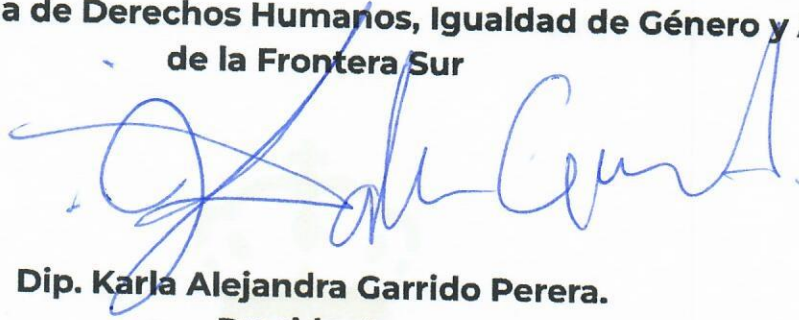 a de Derechos Humanos, Igualdad de Género y
de la Frontera Sur
Dip. Karla Alejandra Garrido Perera.